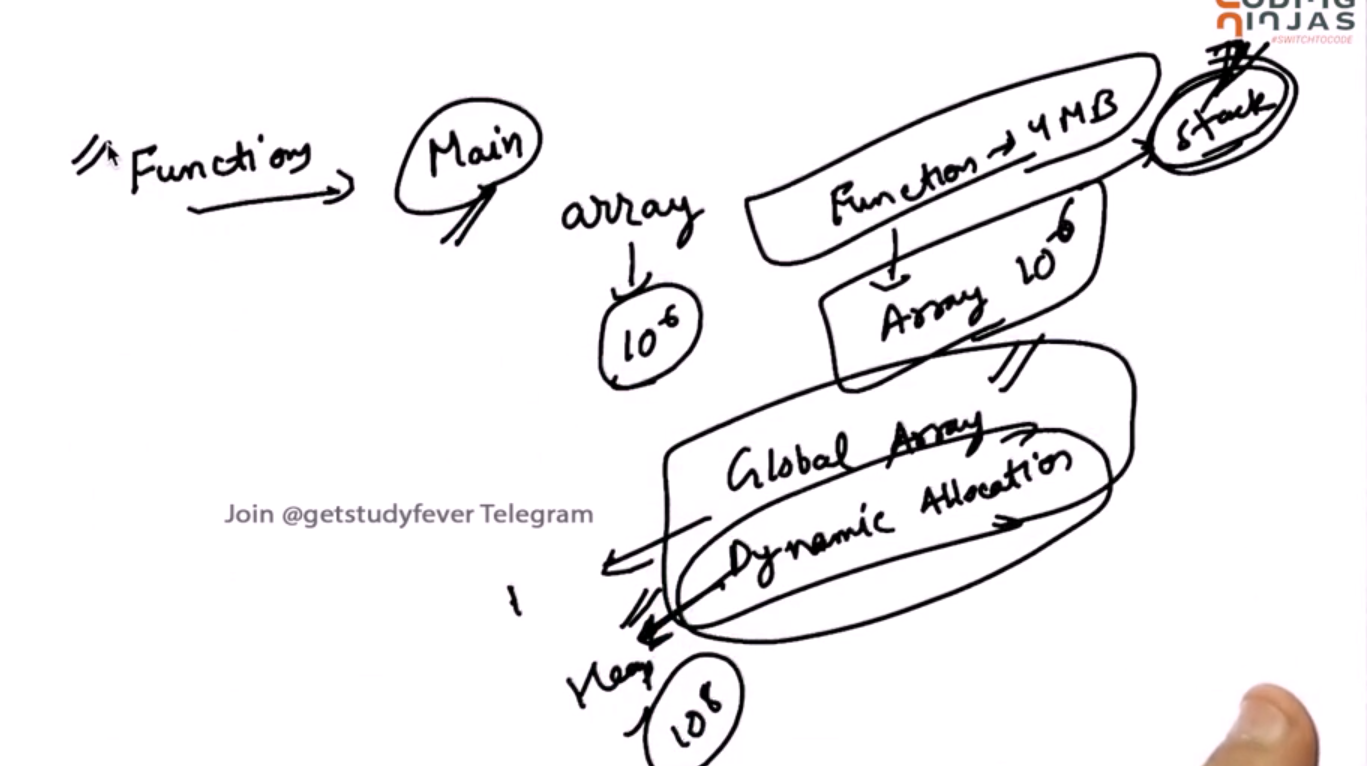 CODING
NINJAS
#SWITCHTOCODE
Functions → Main
array
10⁻⁶
Function → 4 MB
stack
Array 10⁻⁶
Global Array
Dynamic Allocation
Join @getstudyfever Telegram
Heap
10⁸